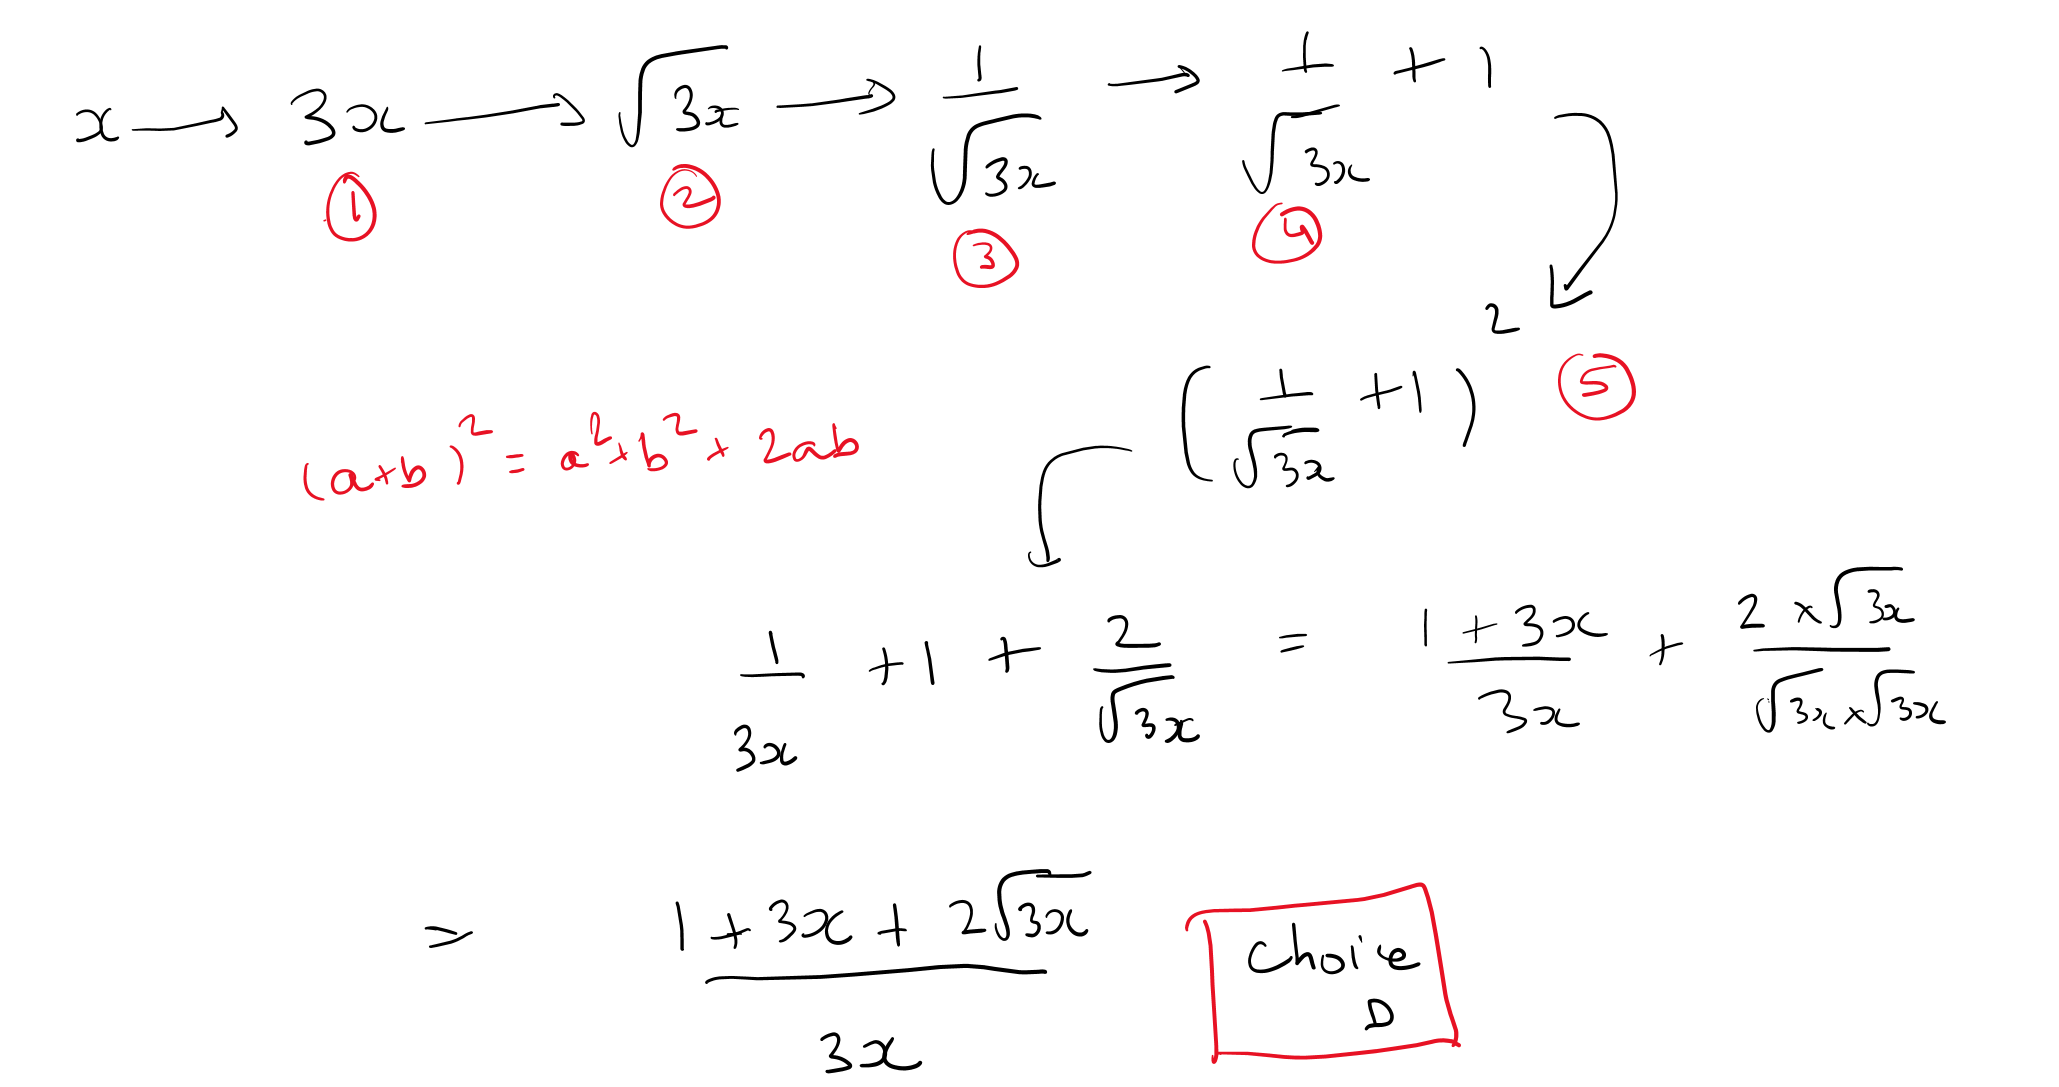 x → 3x → √3x → 1/√3x → 1/√3x + 1
① ② ③ ④
(1/√3x + 1)² ⑤
(a+b)² = a²+b²+ 2ab
1/3x + 1 + 2/√3x = 1 + 3x/3x + 2 × √3x/√3x × √3x
= 1 + 3x + 2√3x/3x
Choice
D